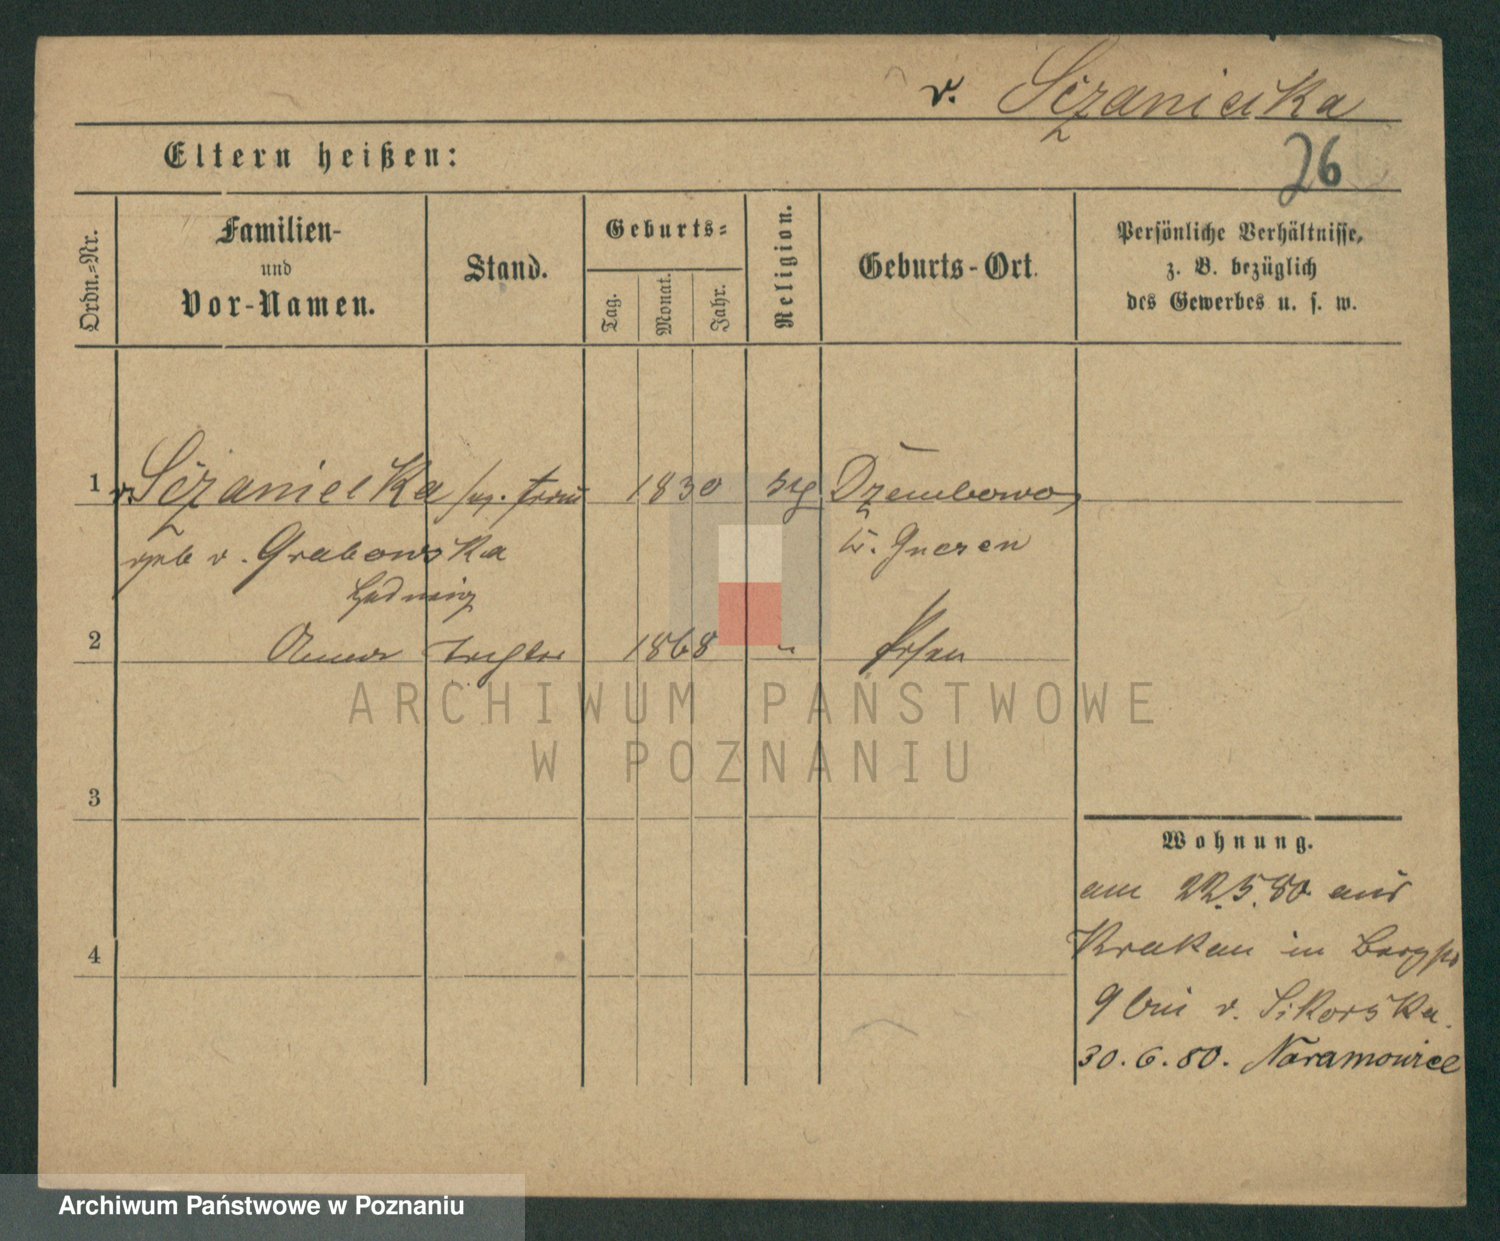 v. Sczaniecka
Eltern heißen:
26
Ordn.-Nr.
Familien-
und
Vor-Namen.
Stand.
Geburts-
Tag.
Monat.
Jahr.
Religion.
Geburts-Ort.
Persönliche Verhältnisse,
z. B. bezüglich
des Gewerbes u. s. w.
1 v. Sczaniecka 1830 Dzembowo
geb v. Grabowska Kr. Gnesen
Hedwig
2 Anna Tochter 1868 " Posen
3
4
Wohnung.
am 22.5.80. aus
Krakau in Bergstr
9 bei v. Sikorska.
30.6.80. Naramowice
ARCHIWUM PAŃSTWOWE
W POZNANIU
Archiwum Państwowe w Poznaniu